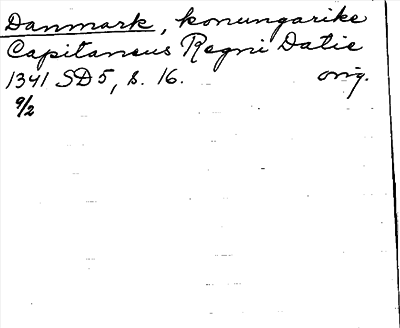 Danmark, konungarike
Capitaneus Regni Datie
1341 SD5, s. 16. orig.
9/2